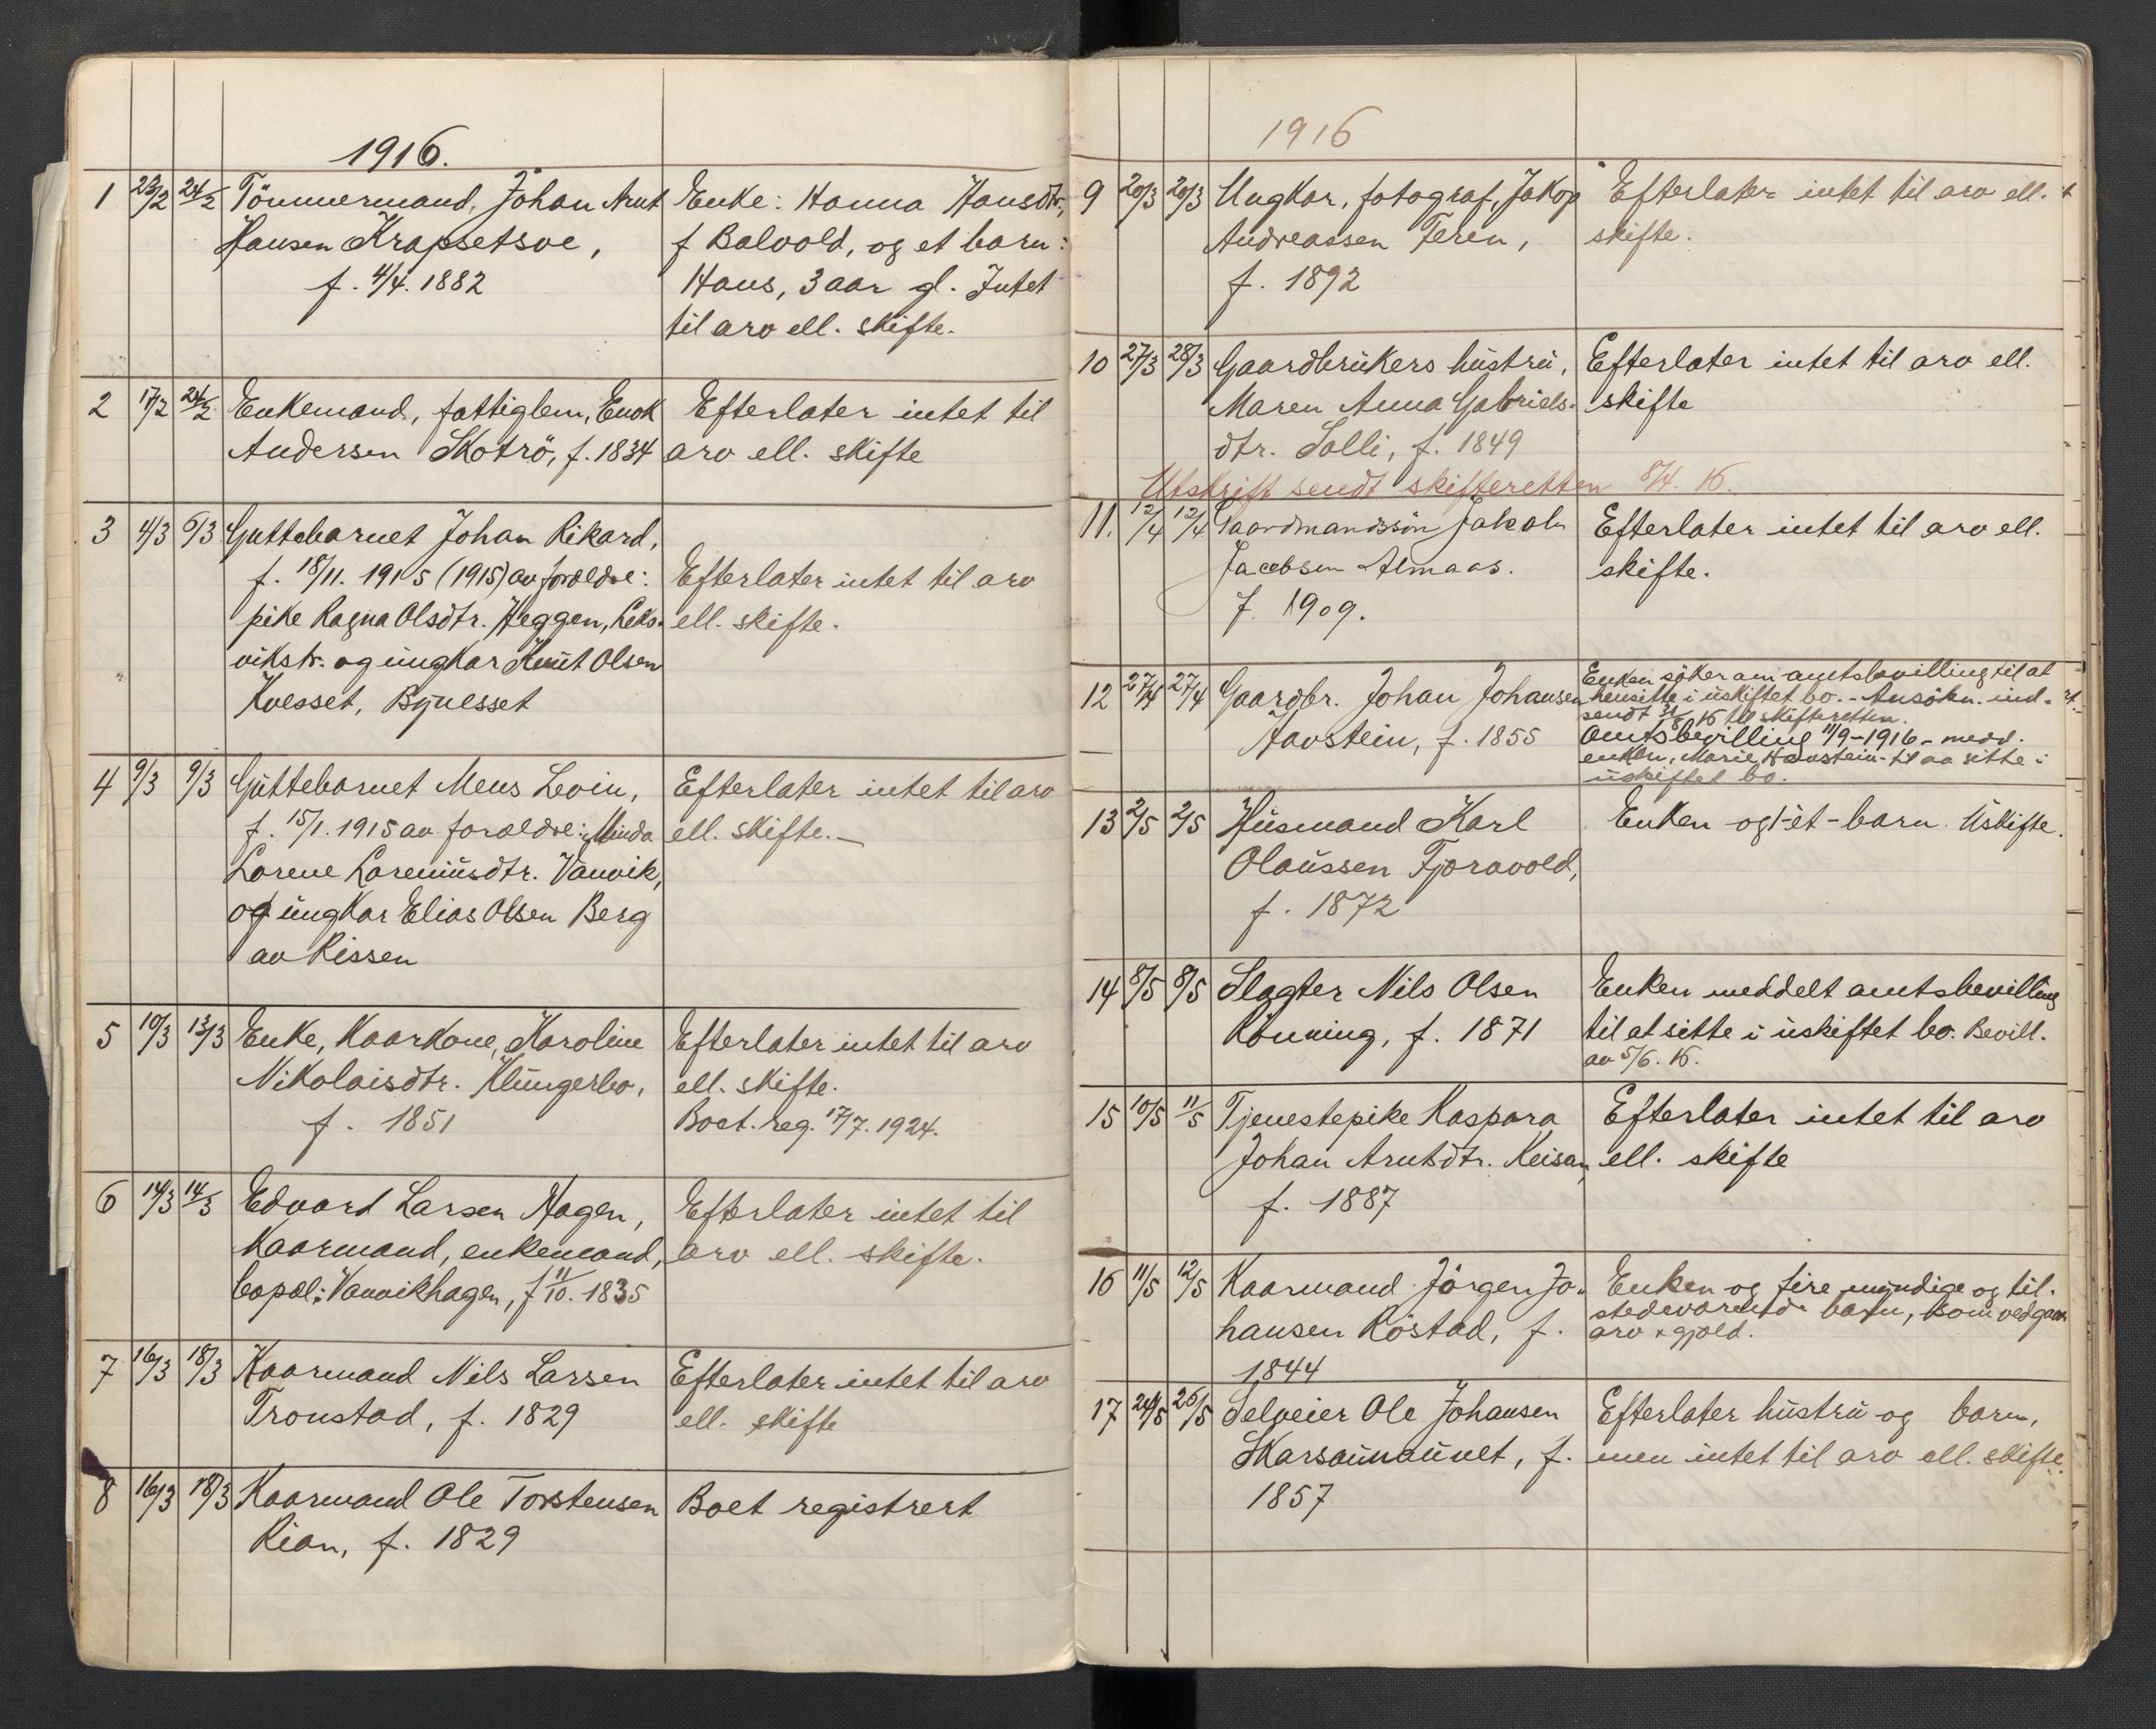 1916.
1 23/2 24/2 Tömmermand, Johan Arnt Enke: Hanna Hansdtr.,
Hansen Krapsetsve, f Balvold, og et barn:
f. 4/4. 1882 Hans, 3 aar gl. Intet
til arv ell. skifte.
2 17/2 24/2 Enkemand, fattiglem, Enok Efterlater intet til
Andersen Skotrö, f. 1834 arv ell. skifte
3 4/3 6/3 Guttebarnet Johan Rikard,
f. 18/11. 1915 (1915) av foreldre: Efterlater intet til arv
pike Ragna Olsdtr. Heggen, Leks- ell. skifte.
vikstr. og ungkar Knut Olsen
Kvesset, Bynesset
4 9/3 9/3 Guttebarnet Mens Levin, Efterlater intet til arv
f. 15/1. 1915 av foreldre: Minda ell. skifte. –
Lorene Lareniusdtr. Vanvik,
og ungkar Elias Olsen Berg
av Rissen
5 10/3 13/3 Enke, Kaarkone, Karoline Efterlater intet til arv
Nikolaisdtr. Klungerbo, ell. skifte.
f. 1851 Boet. reg. 17/7. 1924.
6 14/3 14/3 Edvard Larsen Hagen, Efterlater intet til
Kaarmand, enkemand, arv ell. skifte.
bopæl: Vanvikhagen, f 11/10. 1835
7 16/3 18/3 Kaarmand Nils Larsen Efterlater intet til arv
Tronstad, f. 1829 ell. skifte
8 16/3 18/3 Kaarmand Ole Torstensen Boet registrert
Rian, f. 1829
1916
9 20/3 20/3 Ungkar, fotograf, Jakop Efterlater intet til arv ell.
Andreassen Feren, skifte.
f. 1892
10 27/3 28/3 Gaardbrukers hustru, Efterlater intet til arv ell.
Maren Anna Gabriels- skifte
dtr. Solli, f. 1849
Utskrift sendt skifteretten 8/4. 16.
11. 12/4 12/4 Gaardmandssön Jakob Efterlater intet til arv ell.
Jacobsen Almaas. skifte.
f. 1909.
12 27/4 27/4 Gaardbr. Johan Johansen Enken söker om amtsbevilling til at
Havstein, f. 1855 hensitte i uskiftet bo. - Ansökn. ind-
sendt 31/8 16 til skifteretten.
Amtsbevilling 11/9-1916 - medd.
enken, Marie Havstein - til aa sitte i
uskiftet bo.
13 2/5 2/5 Husmand Karl Enken og 1-et-barn. Uskifte.
Olaussen Fjoravold,
f. 1872
14 8/5 8/5 Slagter Nils Olsen Enken meddelt amtsbevilling
Rönning, f. 1871 til at sitte i uskiftet bo. Bevill.
av 5/6. 16.
15 10/5 11/5 Tjenestepike Kaspara Efterlater intet til arv
Johan Arntsdtr. Keisan, ell. skifte
f. 1887
16 11/5 12/5 Kaarmand Jörgen Jo- Enken og fire myndige og til-
hansen Röstad, f. stedeværende barn, som vedgaar
1844 arv & gjæld.
17 24/5 26/5 Selveier Ole Johansen Efterlater hustru og barn,
Skarsaunaunet, f. men intet til arv ell. skifte.
1857